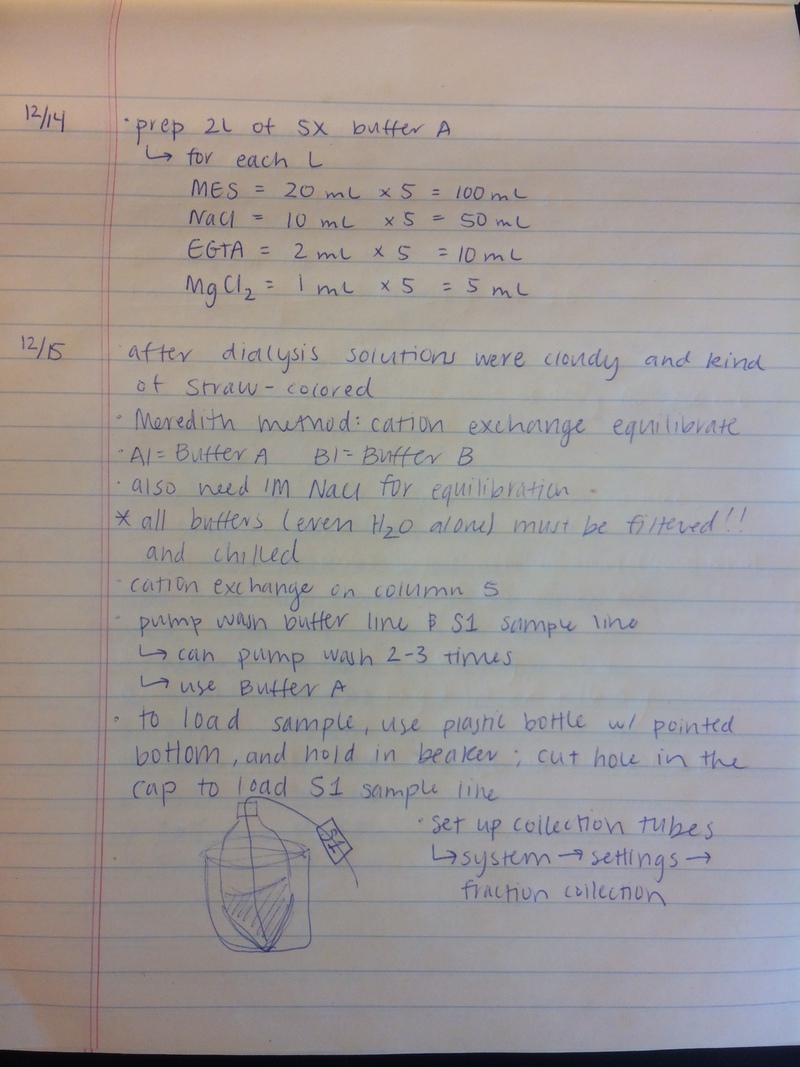 12/14
· prep 2L of 5X buffer A
↳ for each L
MES = 20 mL × 5 = 100 mL
NaCl = 10 mL × 5 = 50 mL
EGTA = 2 mL × 5 = 10 mL
MgCl₂ = 1 mL × 5 = 5 mL
12/15
· after dialysis solutions were cloudy and kind
of straw-colored
· Meredith method: cation exchange equilibrate
· A1 = Buffer A B1 = Buffer B
· also need 1M NaCl for equilibration
* all buffers (even H₂O alone) must be filtered!!
and chilled
· cation exchange on column 5
· pump wash buffer line & S1 sample line
↳ can pump wash 2-3 times
↳ use Buffer A
· to load sample, use plastic bottle w/ pointed
bottom, and hold in beaker; cut hole in the
cap to load S1 sample line
S1
· set up collection tubes
↳ system → settings →
fraction collection